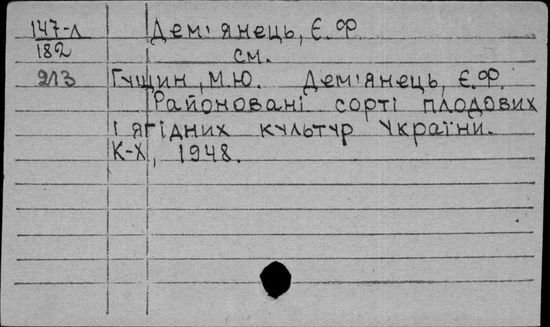 147-л Дем'янець, Є.Ф
182 см.
213 Гущин, М.Ю. Дем'янець, Є.Ф.
Районовані сорті плодових
і ягідних культур України.
К-Х, 1948.